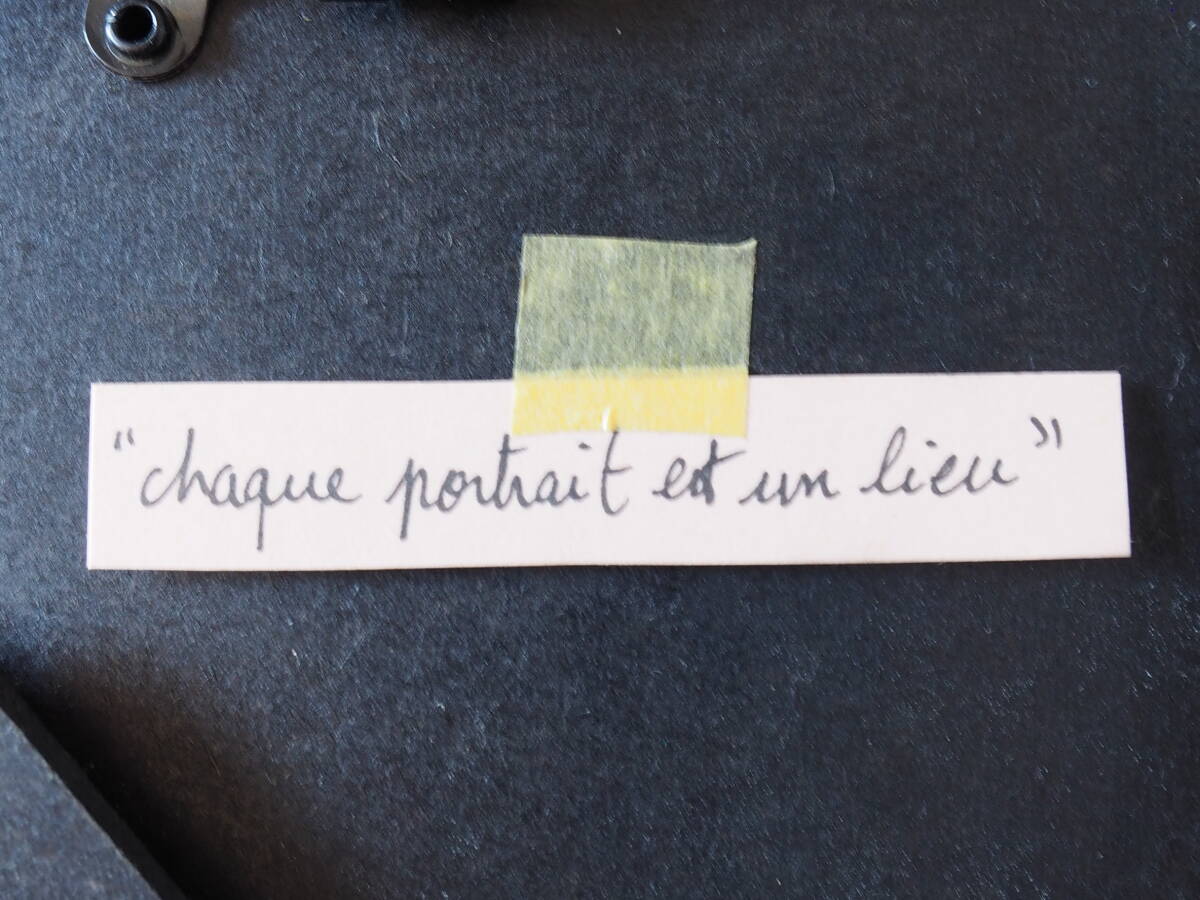 “chaque portrait est un lieu”